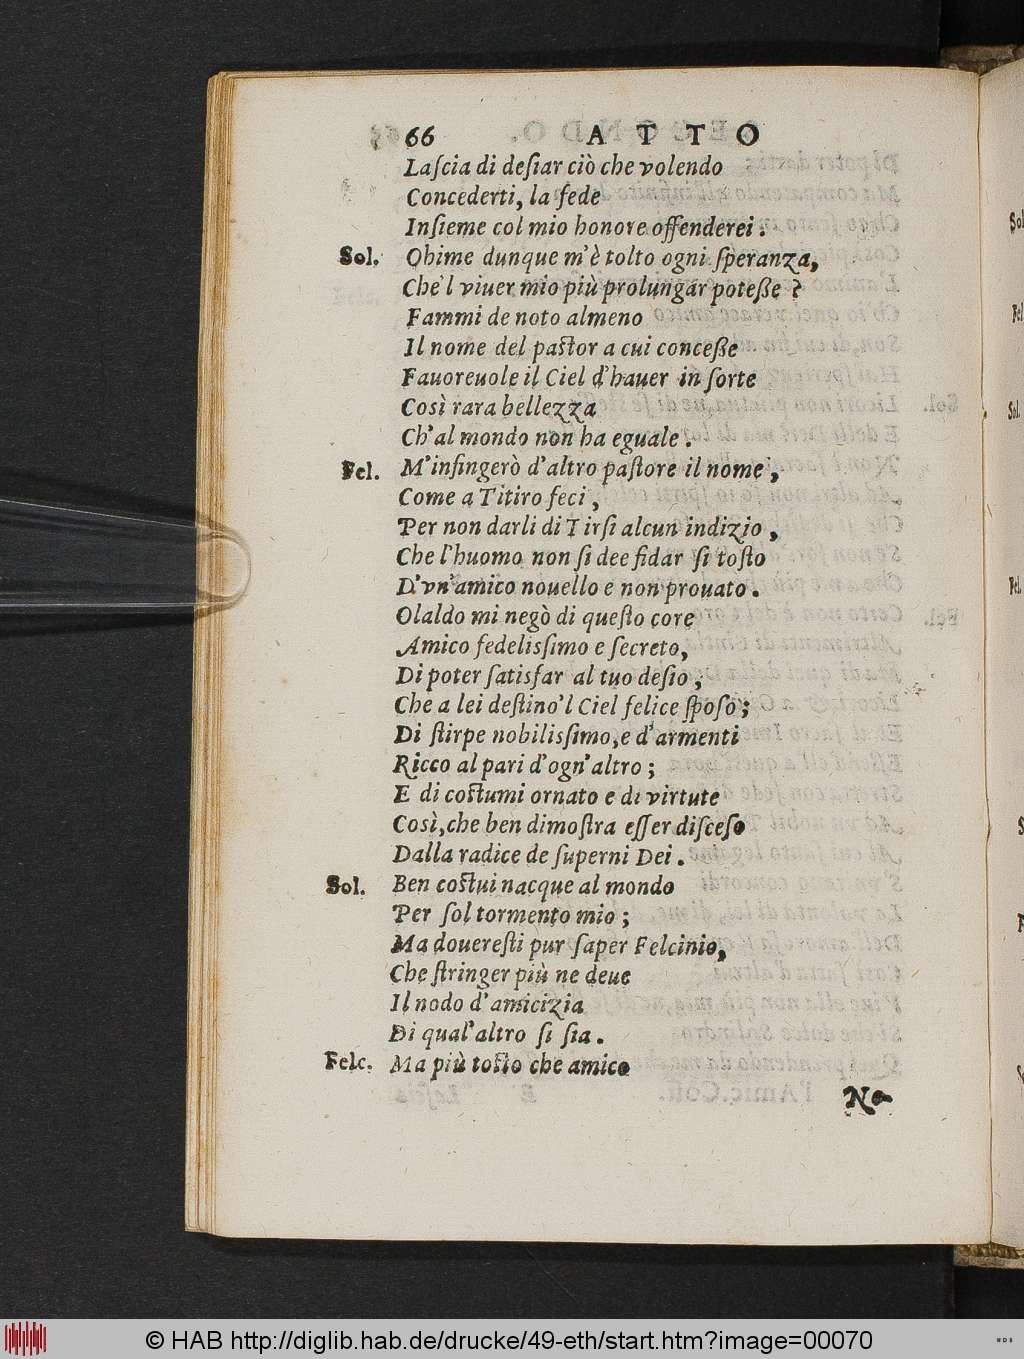 66 ATTO
Laſcia di deſiar ciò che volendo
Concederti, la fede
Inſieme col mio honore offenderei.
Sol. Ohime dunque m'è tolto ogni ſperanza,
Che'l viuer mio più prolungar poteße?
Fammi de noto almeno
Il nome del paſtor a cui conceße
Fauoreuole il Ciel d'hauer in ſorte
Così rara bellezza
Ch'al mondo non ha eguale.
Fel. M'infingerò d'altro paſtore il nome,
Come a Titiro feci,
Per non darli di Tirſi alcun indizio,
Che l'huomo non ſi dee fidar ſi toſto
D'vn'amico nouello e non prouato.
Olaldo mi negò di queſto core
Amico fedeliſsimo e ſecreto,
Di poter ſatisfar al tuo deſio,
Che a lei deſtino'l Ciel felice ſpoſo;
Di ſtirpe nobiliſsimo,e d'armenti
Ricco al pari d'ogn'altro;
E di coſtumi ornato e di virtute
Così,che ben dimoſtra eſſer diſceſo
Dalla radice de ſuperni Dei.
Sol. Ben coſtui nacque al mondo
Per ſol tormento mio;
Ma doureſti pur ſaper Felcinio,
Che ſtringer più ne deue
Il nodo d'amicizia
Di qual'altro ſi ſia.
Felc. Ma più toſto che amico
No
© HAB http://diglib.hab.de/drucke/49-eth/start.htm?image=00070